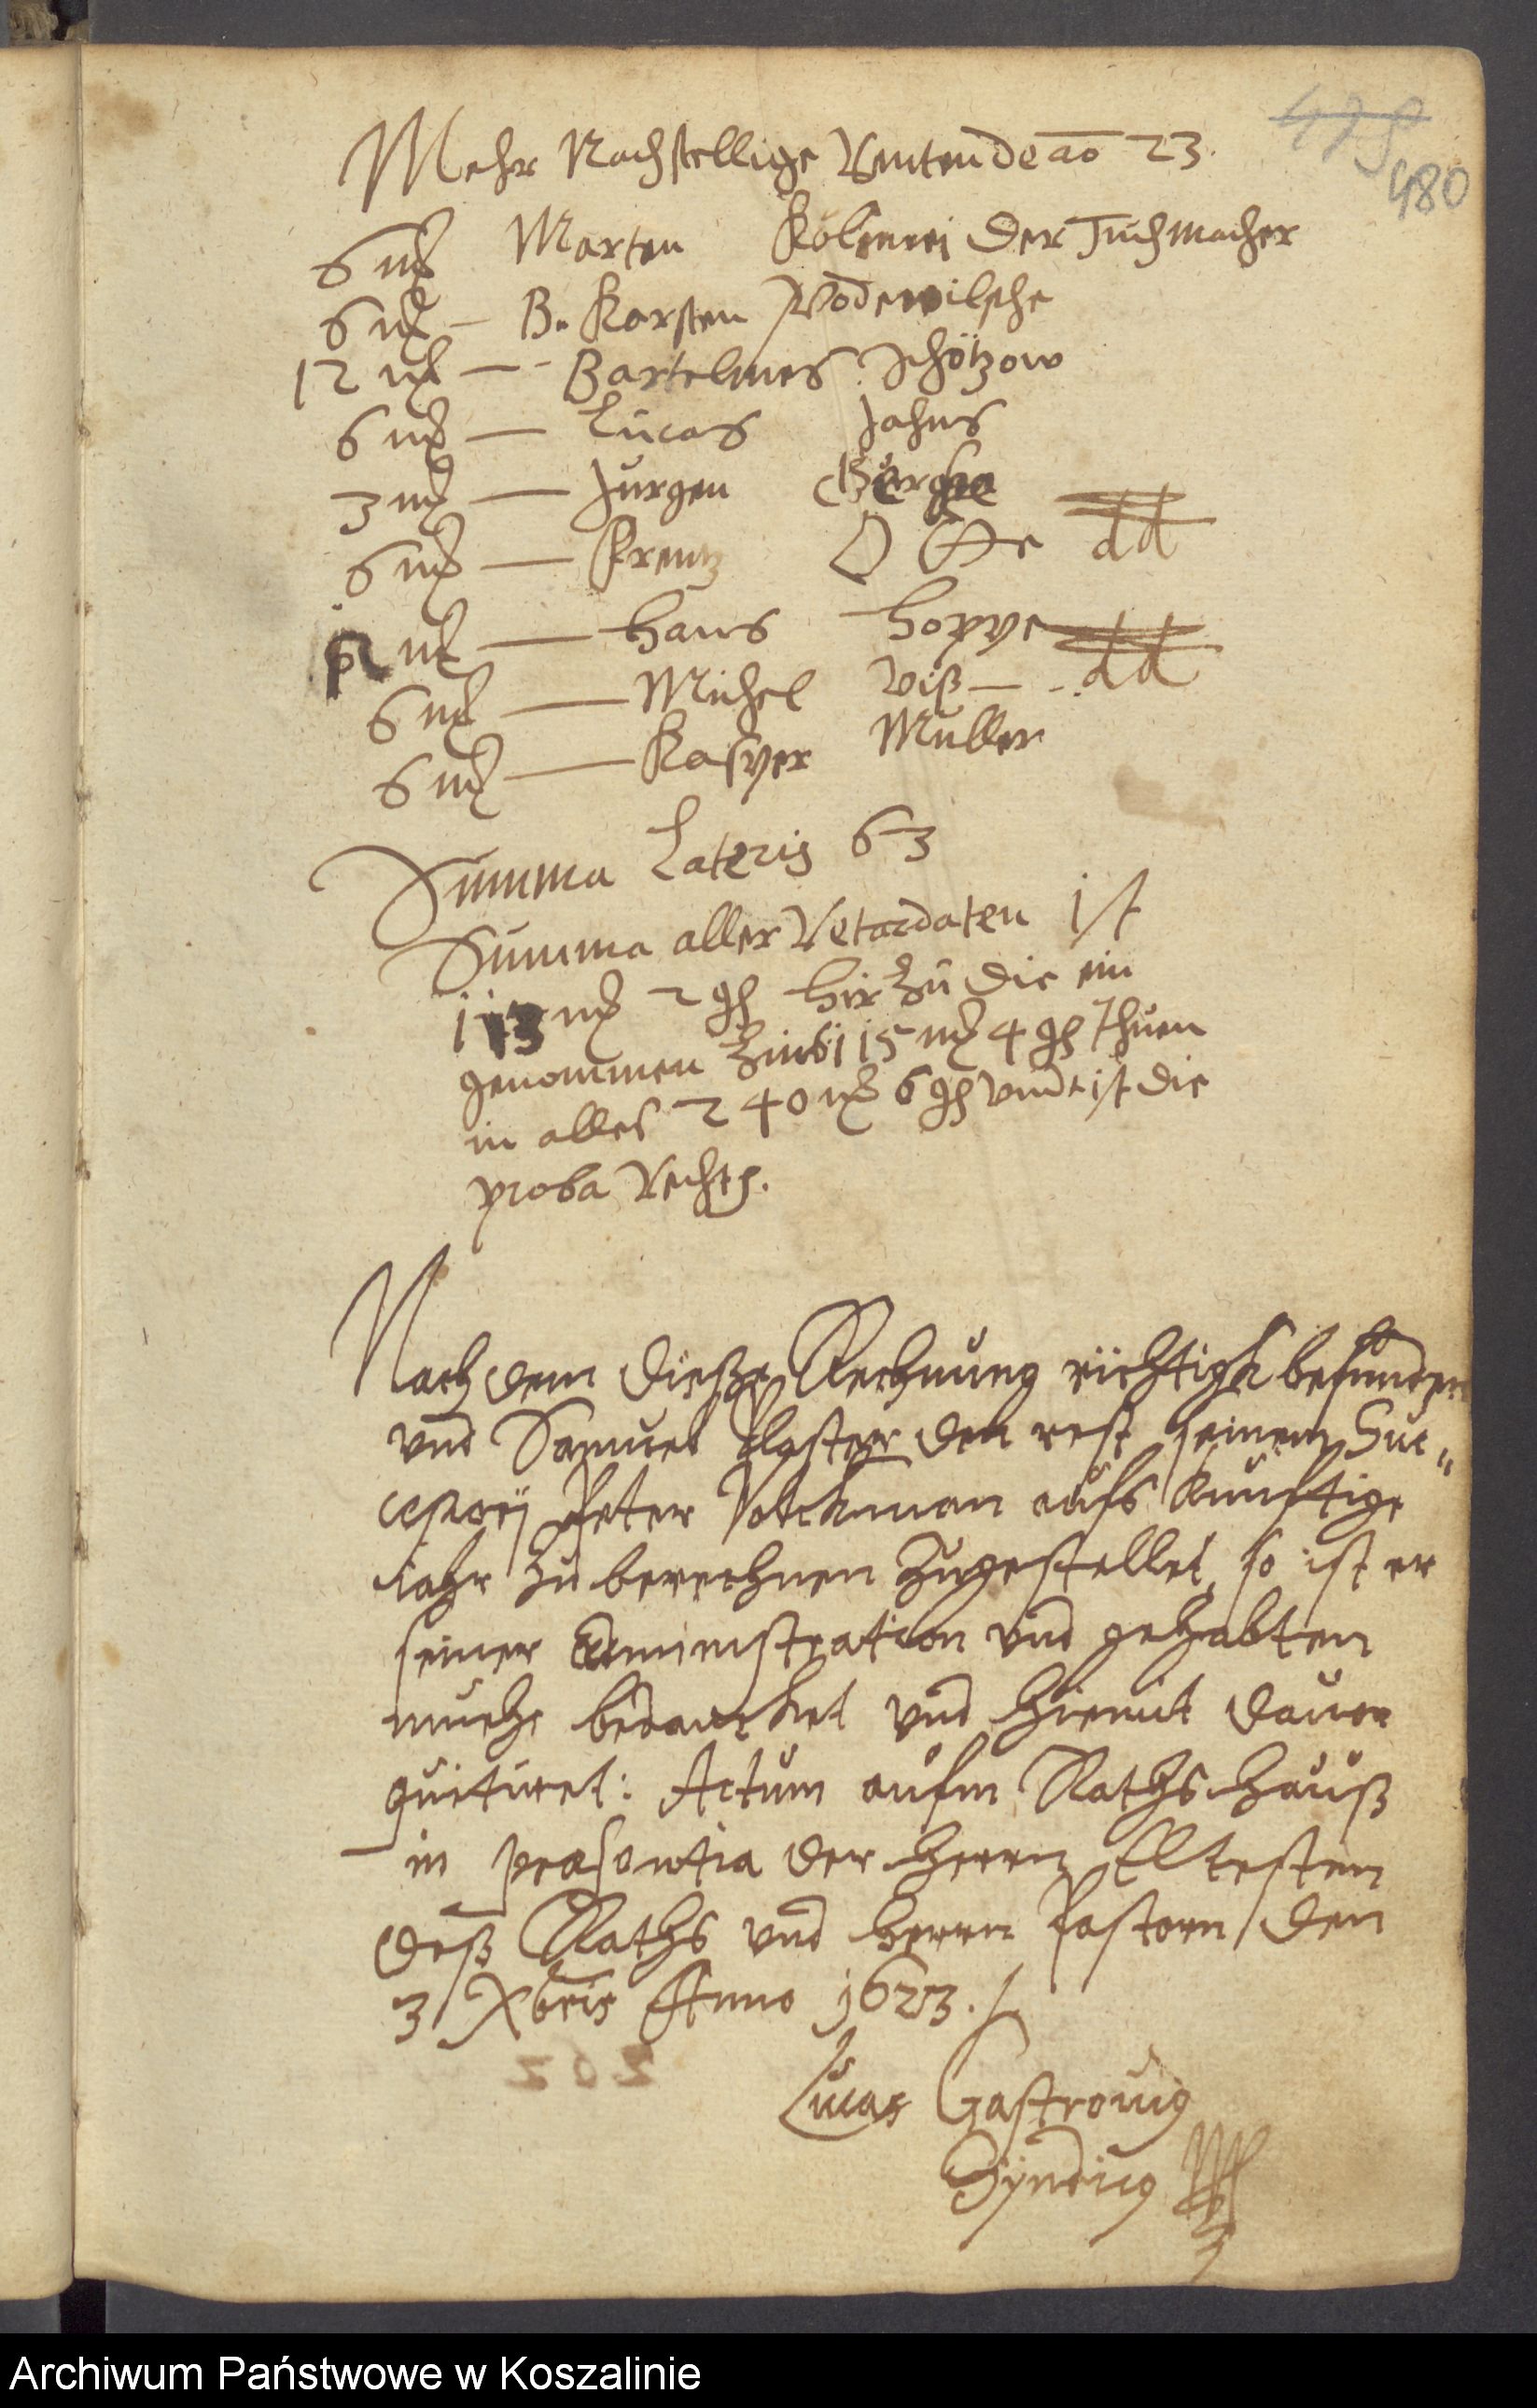 479
480
Mehr Nachstellige Renten de ao 23.
6 mk Marten Kölmei der Tuchmacher
6 mk — B. Karsten Podewilsche
12 mk — Bartelmes Schötzow
6 mk — Lucas Jahns
3 mk — Jurgen
6 mk — Krentz dd
mk — Hans Hoppe
6 mk — Michel Viß — dd
6 mk — Kasper Muller
Summa Lateris 63
Summa aller Retardaten ist
mk 2 gß hirzu die ein
genommen Zinß 115 mk 4 gß thuen
in alles 240 mk 6 gß vnd ist die
proba Rechts.
Nach dem dieße Rechnung richtigk befunden
vnd Samuel Plaster den rest seinem Suc„
cessorj Peter Volckman aufs kunftige
iahr zu berechnen zugestellet, so ist er
seiner administration vnd gehabten
muehe bedancket vnd hiemit dauon
quitiret: Actum aufm Rathshauß
in præsentia der herrn Eltesten
deß Raths vnd herrn Pastorn den
3 Xbris Anno 1623.
Lucas Gastrouig
Syndicg
Archiwum Państwowe w Koszalinie